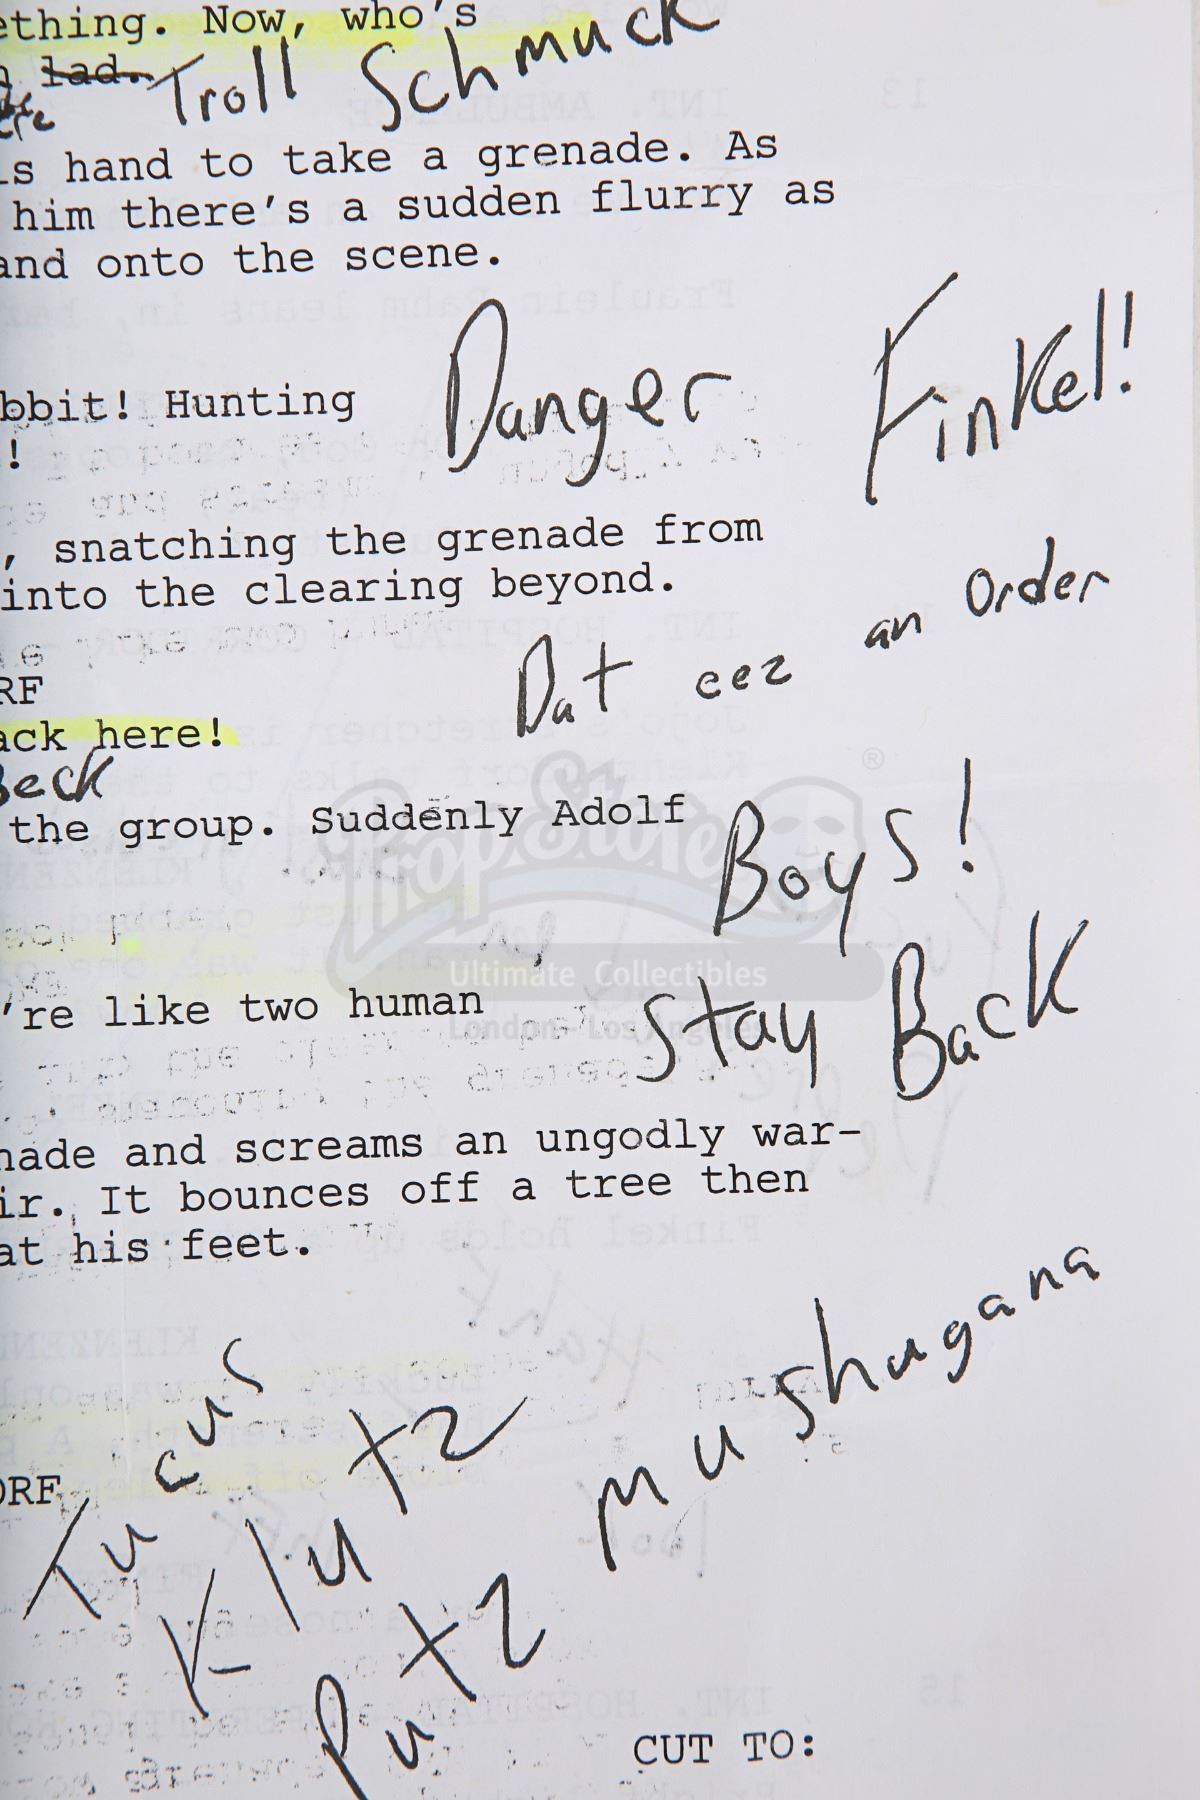 ething. Now, who's
lad. Troll Schmuck
is hand to take a grenade. As
him there's a sudden flurry as
and onto the scene.
Danger Finkel!
bbit! Hunting
!
, snatching the grenade from
into the clearing beyond.
Dat eez an Order
RF
ack here!
Beck
the group. Suddenly Adolf
Boys!
PropStore ®
Ultimate Collectibles
London - Los Angeles
're like two human
Stay Back
nade and screams an ungodly war-
ir. It bounces off a tree then
at his feet.
mushugana
Tucus
ORF
Klutz
Putz
CUT TO: